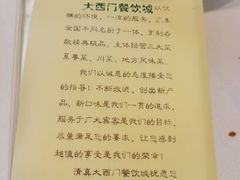 大西门餐饮城以优
雅的环境,一流的服务,汇集
全国不同名厨于一体,烹制各
款精典极品。主体经营三大菜
系粤菜、川菜、地方风味菜。
我们以诚恳的态度接受您
的指导!不断改进,创出新产
品、新口味是我们一贯的追求,
服务于广大宾客是我们的目标,
尽量满足您的要求,让您感到
超值的享受是我们的荣幸!
清真大西门餐饮城祝愿您